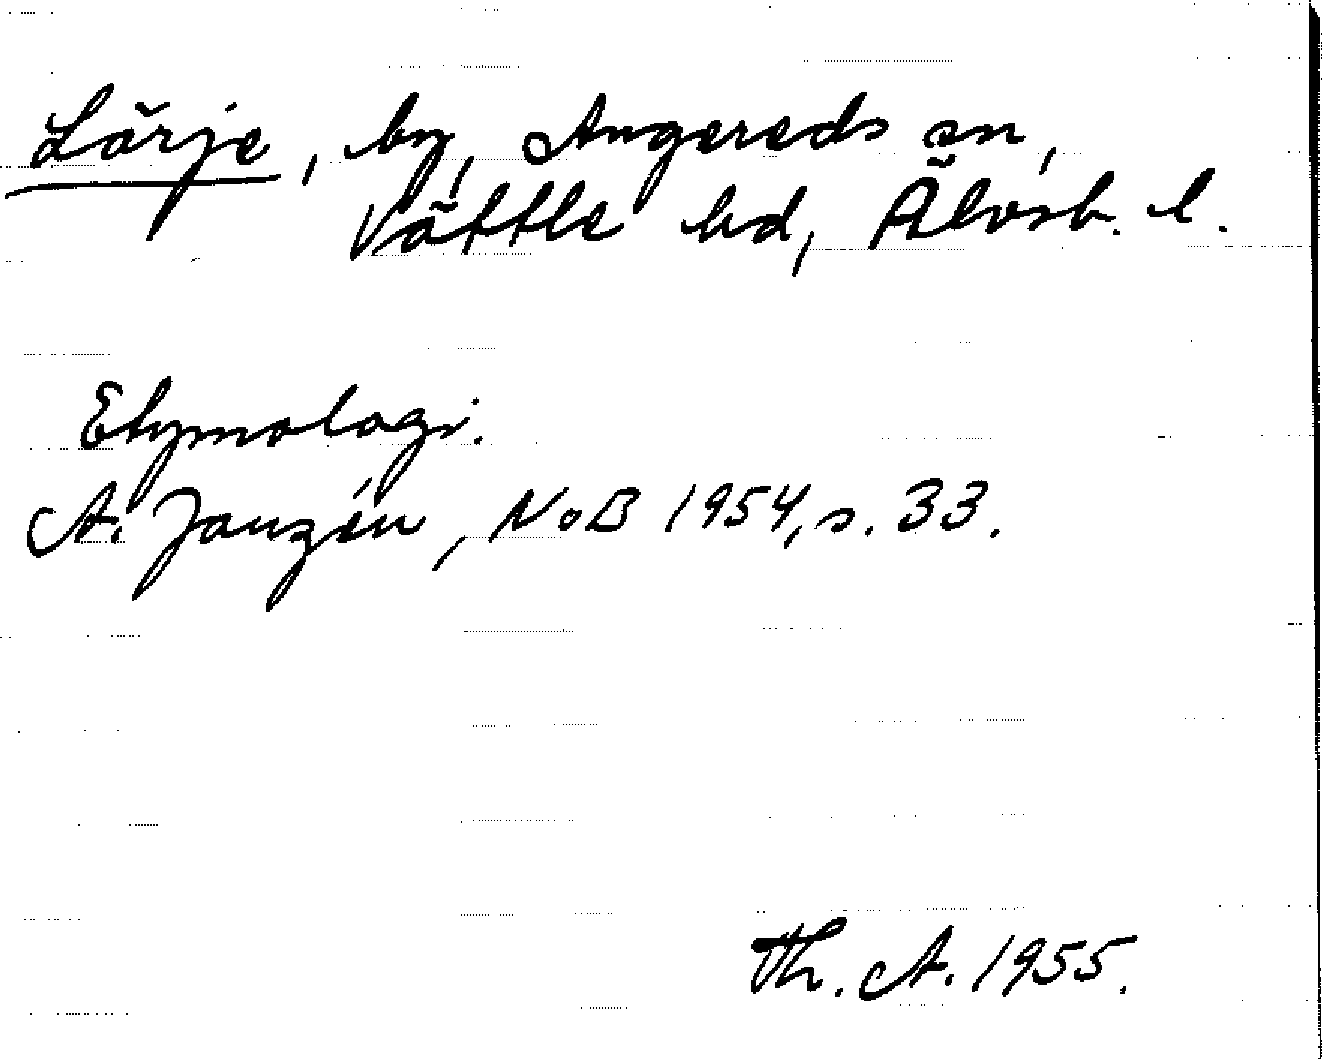 Lärje, by, Angereds sn,
Vättle hd, Älvsb. l.
Etymologi.
A. Janzén, NoB 1954, s. 33.
Th. A. 1955.